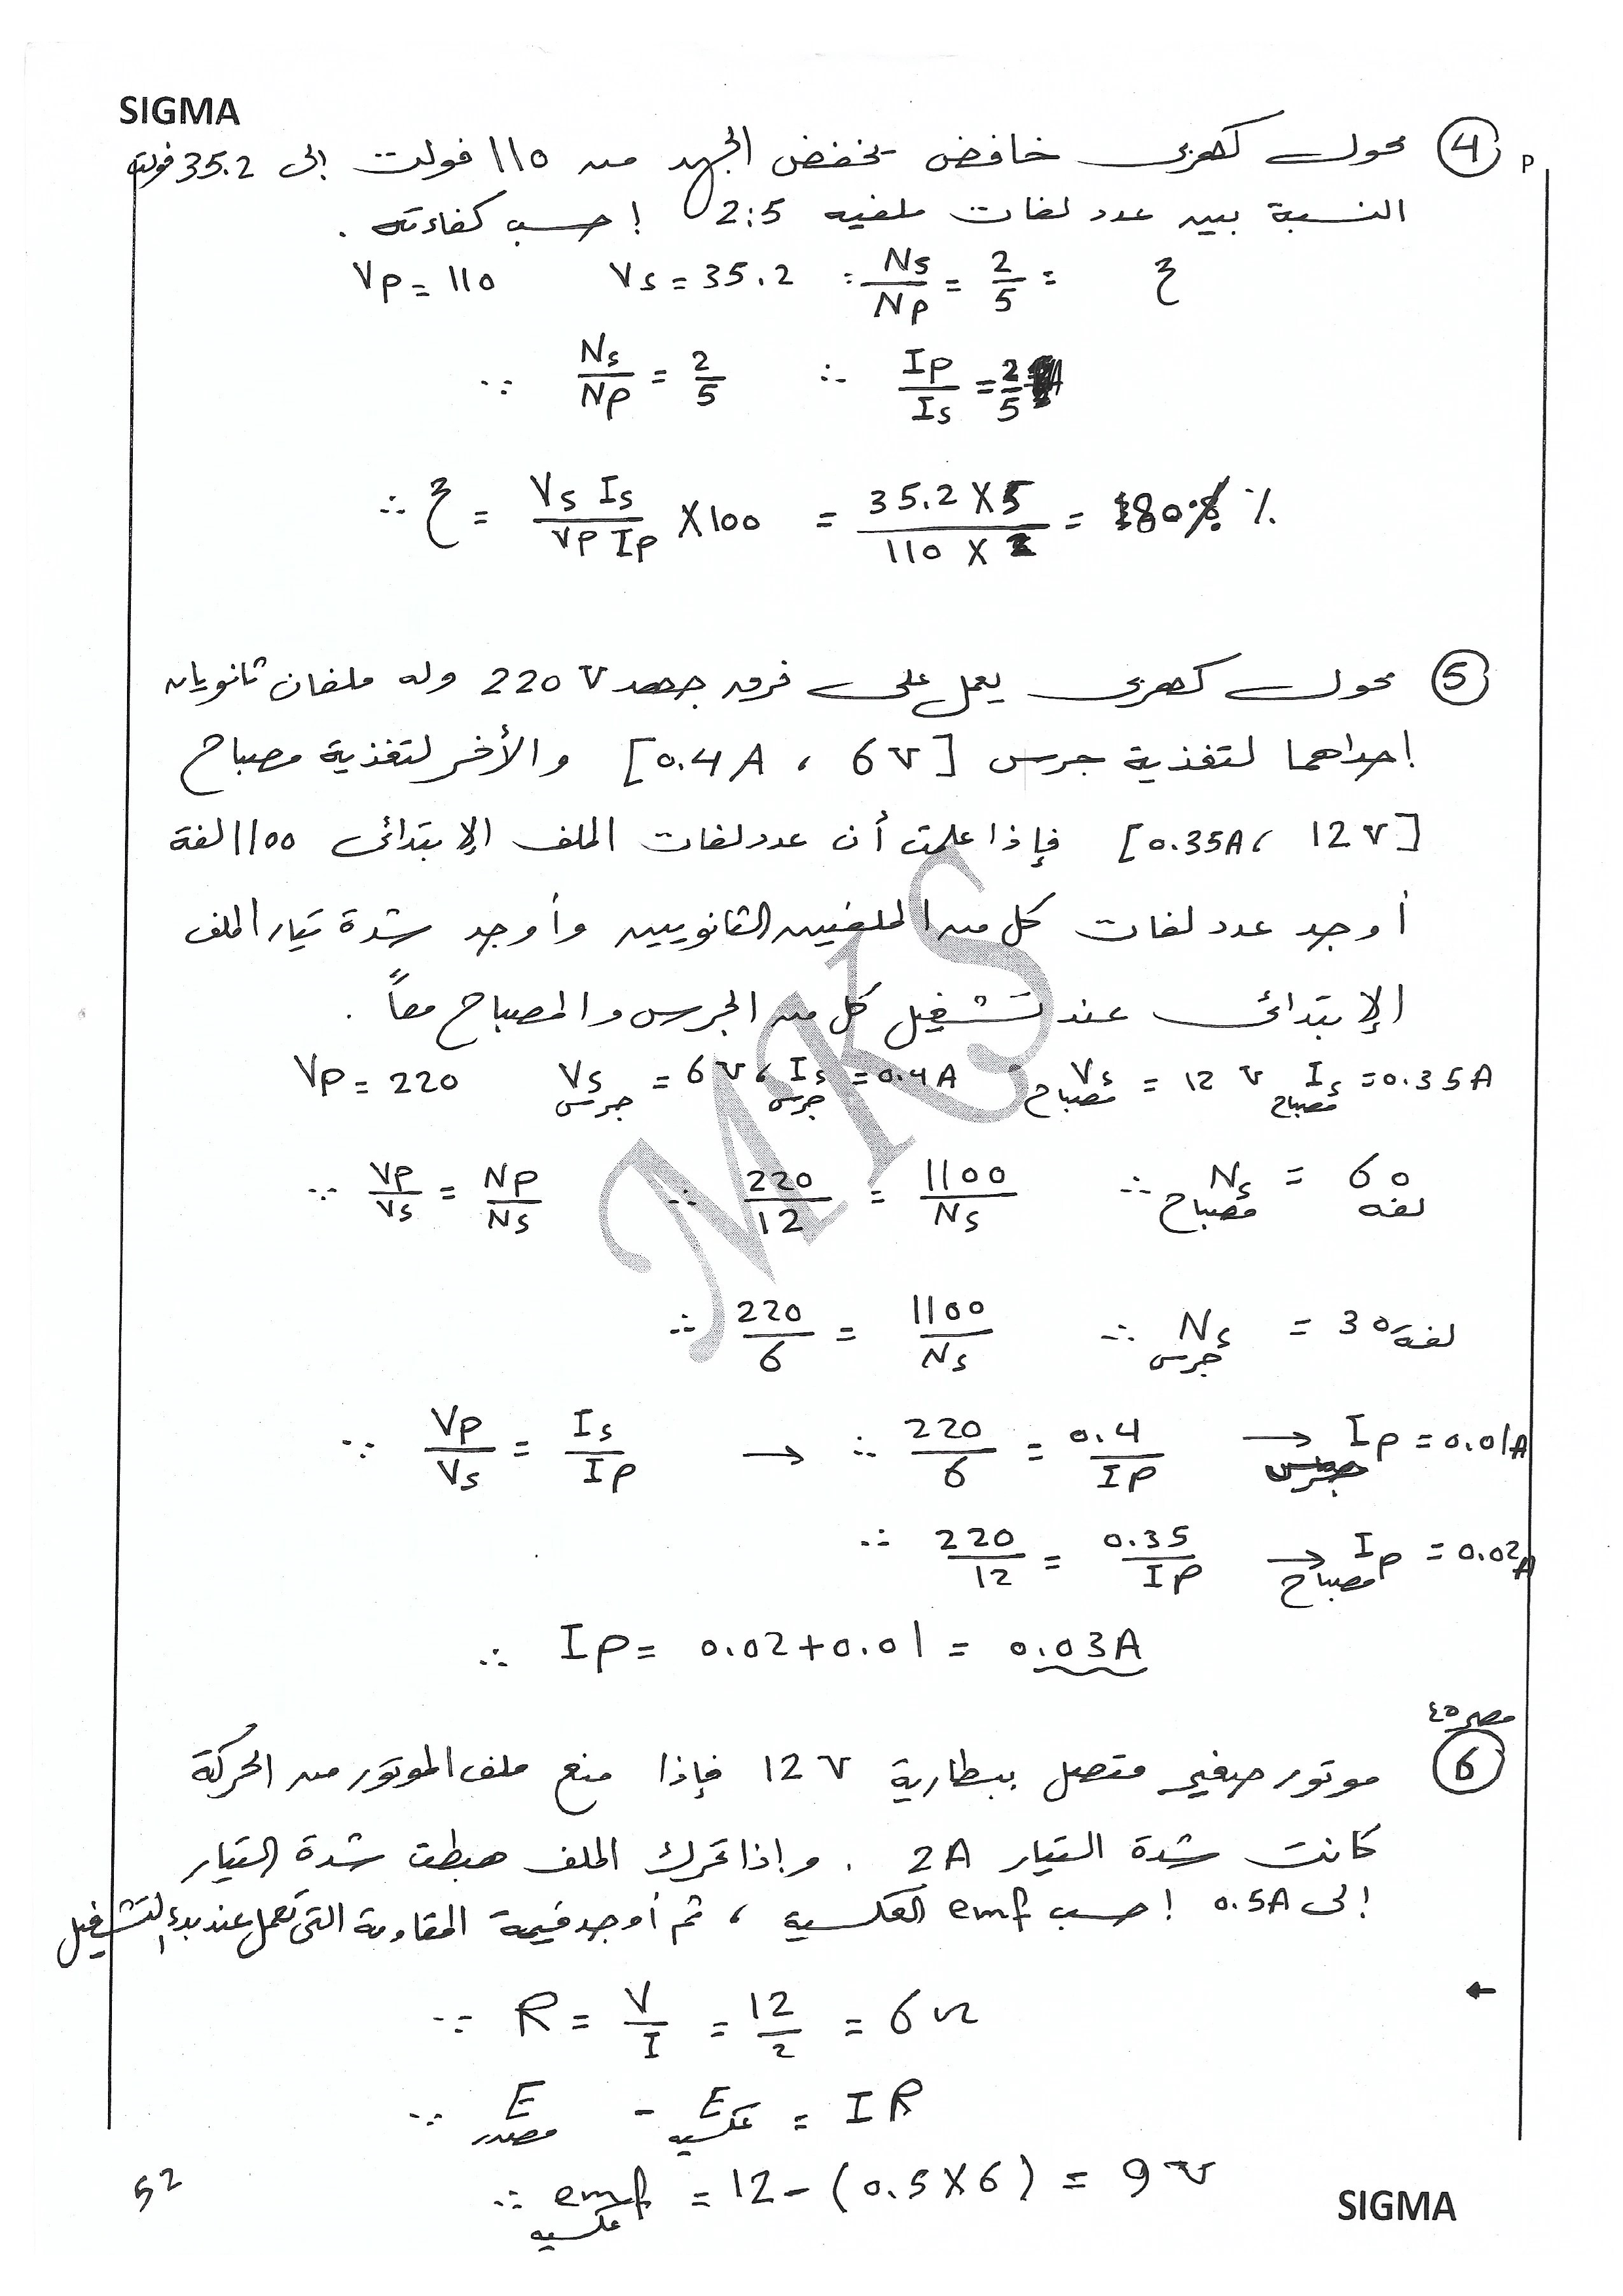 SIGMA
④ محول كهربى خافض يخفض الجهد من 110 فولت الى 35.2 فولت
P
النسبة بين عدد لفات ملفيه 2:5 احسب كفاءته .
Vp = 110 Vs = 35.2 : Ns/Np = 2/5 = ع
∵ Ns/Np = 2/5 ∴ Ip/Is = 2/5
∴ ع = Vs Is/Vp Ip X100 = 35.2 X 5/110 X 2 = 80 %
⑤ محول كهربى يعمل على فرق جهد 220 V وله ملفان ثانويان
احداهما لتغذية جرس [0.4A ، 6V] والأخر لتغذية مصباح
[0.35A ، 12V] فإذا علمت أن عدد لفات الملف الإبتدائى 1100 لفة
أوجد عدد لفات كل من الملفين الثانويين وأوجد شدة تيار الملف
الإبتدائى عند تشغيل كل من الجرس والمصباح معاً .
Vp = 220 Vs جرس = 6V ، Is جرس = 0.4A Vs مصباح = 12 V Is مصباح = 0.35A
∵ Vp/Vs = Np/Ns ∴ 220/12 = 1100/Ns ∴ Ns مصباح = 60 لفه
∴ 220/6 = 1100/Ns ∴ Ns جرس = 30 لفه
∵ Vp/Vs = Is/Ip → ∴ 220/6 = 0.4/Ip → Ip جرس = 0.01A
∴ 220/12 = 0.35/Ip → Ip مصباح = 0.02A
∴ Ip = 0.02 + 0.01 = 0.03A
مصر ٤٥
⑥ موتور صغير متصل ببطارية 12V فإذا منع ملف الموتور من الحركة
كانت شدة التيار 2A . وإذا تحرك الملف هبطت شدة التيار
إلى 0.5A احسب emf العكسية ، ثم أوجد قيمة المقاومة التى تعمل عند بدء التشغيل
←
∵ R = V/I = 12/2 = 6 Ω
∵ E مصدر - E عكسيه = IR
∴ emf عكسيه = 12 - (0.5X6) = 9 V
52
SIGMA
MKS